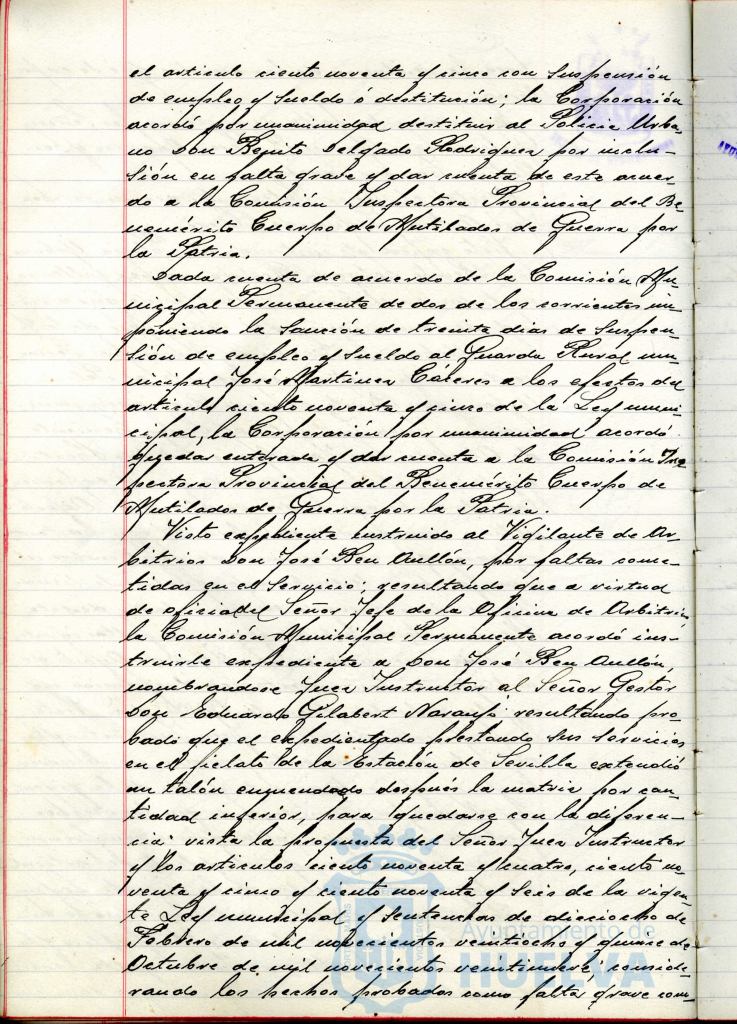 el articulo ciento noventa y cinco con suspensión
de empleo y sueldo ó destitución; la Corporación
acordó por unanimidad destituir al Policia Urba-
no Don Benito Delgado Rodriguez por inclu-
sión en falta grave y dar cuenta de este acuer-
do a la Comisión Inspectora Provincial del Be-
nemérito Cuerpo de Mutilados de Guerra por
la Patria.
Dada cuenta de acuerdo de la Comisión Mu-
nicipal Permanente de dos de los corrientes im-
poniendo la sanción de treinta dias de suspen-
sión de empleo y sueldo al Guarda Rural mu-
nicipal José Martinez Cáceres a los efectos del
articulo ciento noventa y cinco de la Ley muni-
cipal, la Corporación por unanimidad acordó
quedar enterada y dar cuenta a la Comisión Ins
pectora Provincial del Benemérito Cuerpo de
Mutilados de Guerra por la Patria.
Visto expediente instruido al Vigilante de Ar-
bitrios Don José Ben Aullón, por faltas come-
tidas en el servicio; resultando que a virtud
de oficio del Señor Jefe de la Oficina de Arbitrios,
la Comisión Municipal Permanente acordó ins-
truirle expediente a Don José Ben Aullón,
nombrandose Juez Instructor al Señor Gestor
Don Eduardo Gilabert Naranjo; resultando pro-
bado que el expedientado prestando sus servicios
en el fielato de la Estación de Sevilla extendió
un talón enmendado después la matriz por can-
tidad inferior, para quedarse con la diferen-
cia; vista la propuesta del Señor Juez Instructor
y los articulos ciento noventa y cuatro, ciento no-
venta y cinco y ciento noventa y seis de la vigen-
te Ley municipal y sentencias de dieciocho de
Febrero de mil novecientos veintiocho y quince de
Octubre de mil novecientos veintinueve, conside-
rando los hechos probados como falta grave com-
Ayuntamiento de
HUELVA